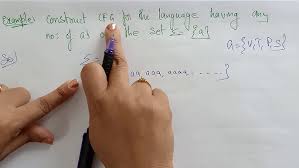 Example: Construct CFG for the language having any
no: of a's the set Σ = {a}
G = {V, T, P, S}
Sol
Σ = aa, aaa, aaaa, ......}